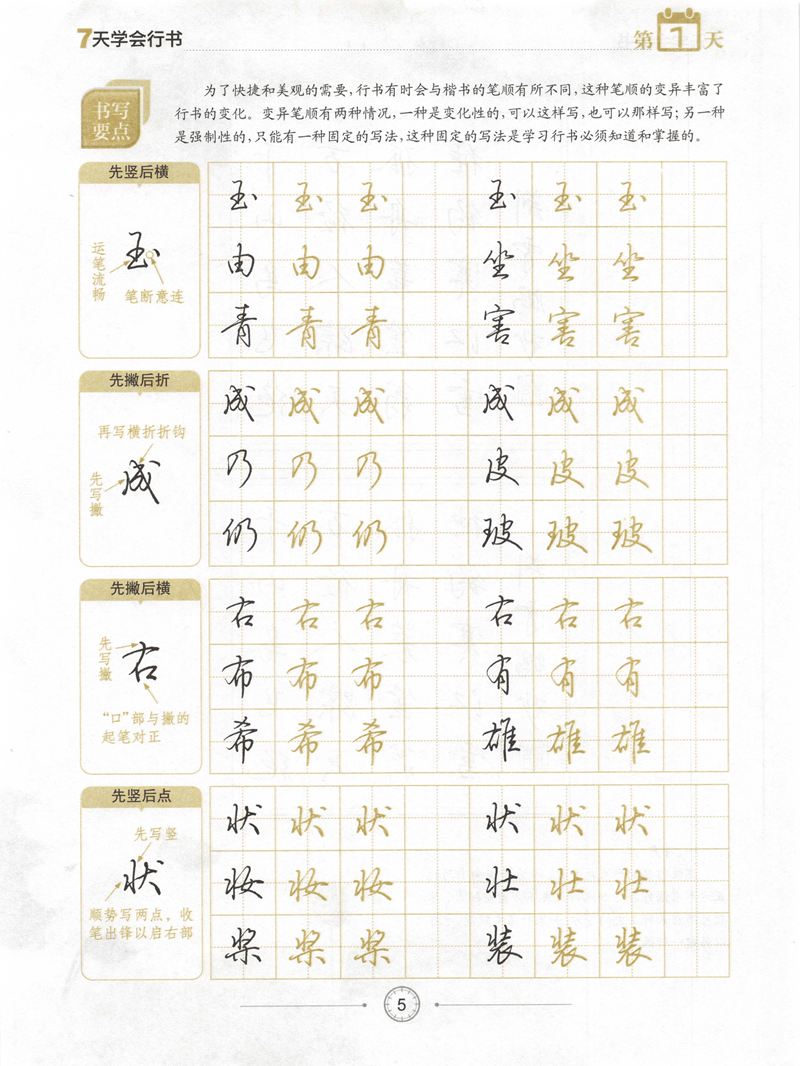 7天学会行书
第1天
书写
要点
为了快捷和美观的需要,行书有时会与楷书的笔顺有所不同,这种笔顺的变异丰富了
行书的变化。变异笔顺有两种情况,一种是变化性的,可以这样写,也可以那样写;另一种
是强制性的,只能有一种固定的写法,这种固定的写法是学习行书必须知道和掌握的。
先竖后横
玉
运笔流畅
笔断意连
玉 玉 玉 玉 玉 玉
由 由 由 坐 坐 坐
青 青 青 害 害 害
先撇后折
再写横折折钩
先写撇
成
成 成 成 成 成 成
乃 乃 乃 皮 皮 皮
仍 仍 仍 玻 玻 玻
先撇后横
先写撇
右
“口”部与撇的
起笔对正
右 右 右 右 右 右
布 布 布 有 有 有
希 希 希 雄 雄 雄
先竖后点
先写竖
状
顺势写两点,收
笔出锋以启右部
状 状 状 状 状 状
妆 妆 妆 壮 壮 壮
桨 桨 桨 装 装 装
5